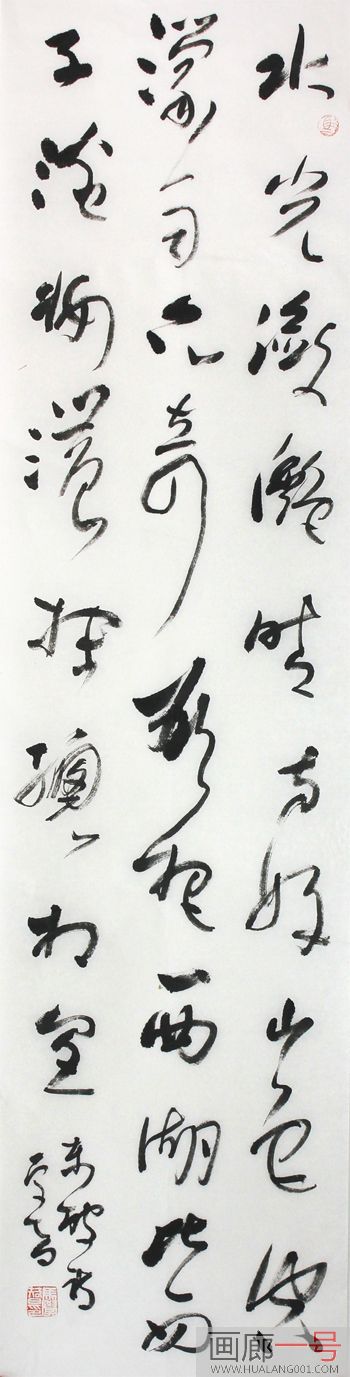 水光瀲灩晴方好山色空
濛雨亦奇欲把西湖比西
子淡妝濃抹總相宜
東坡詩
画廊一号
WWW.HUALANG001.COM